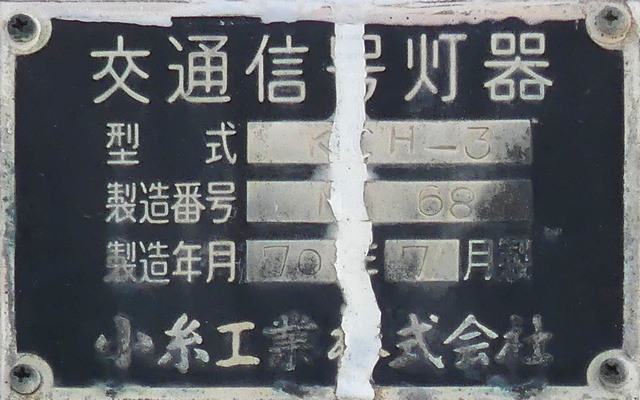 交通信号灯器
型式 KCH-3
製造番号 68
製造年月 70年7月製
小糸工業株式会社